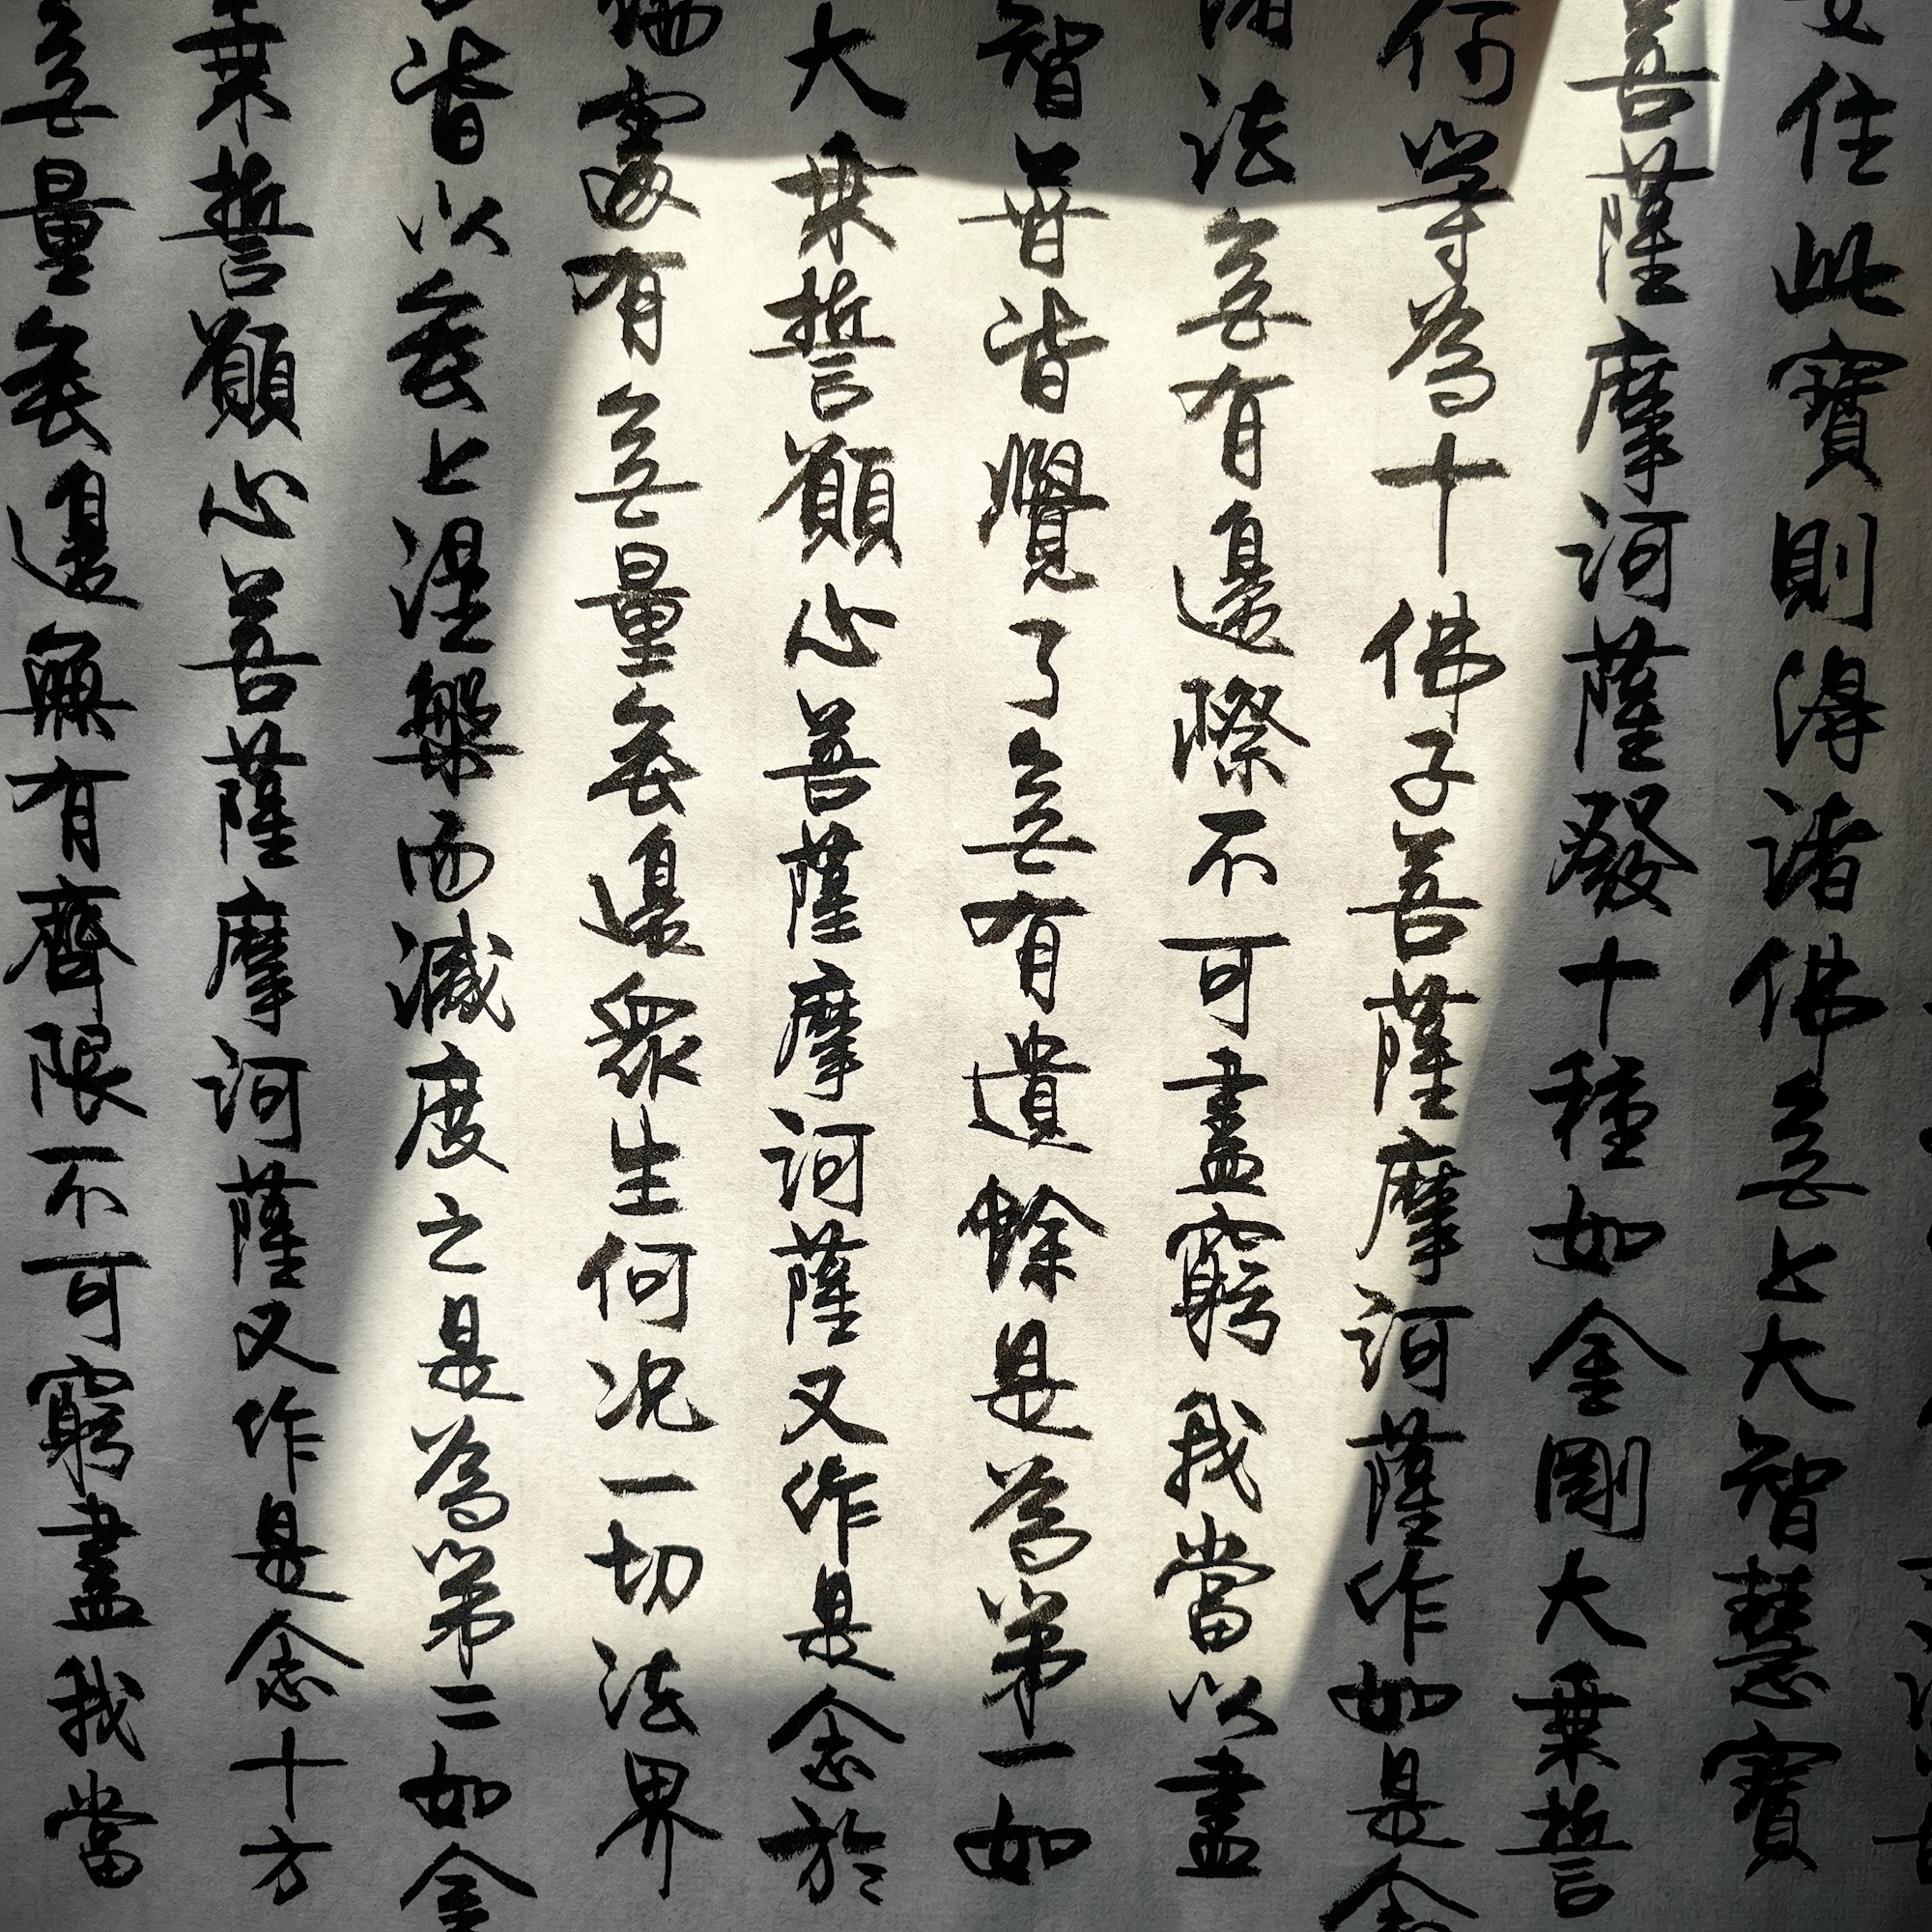 安住此寶則得諸佛無上大智慧寶
菩薩摩訶薩發十種如金剛大乘誓
何等為十佛子菩薩摩訶薩作如是念
諸法無有邊際不可盡窮我當以盡
智普皆覺了無有遺餘是為第一如
大乘誓願心菩薩摩訶薩又作是念於
端處有無量無邊眾生何况一切法界
皆以無上涅槃而滅度之是為第二如金
乘誓願心菩薩摩訶薩又作是念十方
無量無邊無有齊限不可窮盡我當